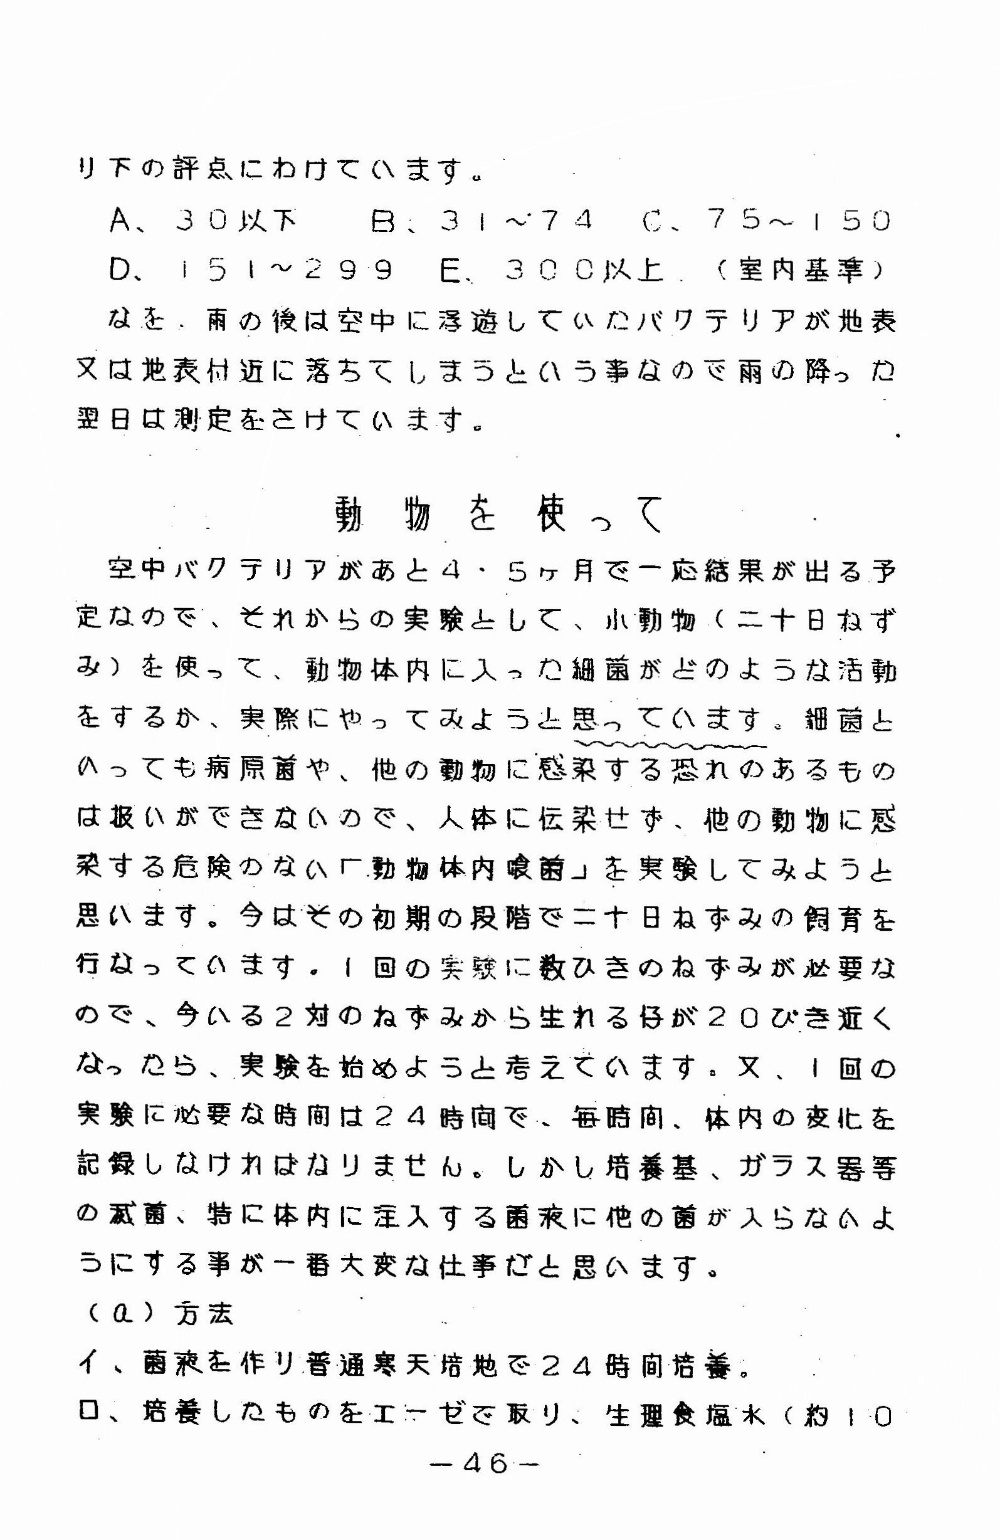 り下の評点にわけています。
A、30以下　B、31〜74　C、75〜150
D、151〜299　E、300以上　（室内基準）
なを、雨の後は空中に浮遊していたバクテリアが地表
又は地表付近に落ちてしまうという事なので雨の降った
翌日は測定をさけています。
動物を使って
空中バクテリアがあと4・5ヶ月で一応結果が出る予
定なので、それからの実験として、小動物（二十日ねず
み）を使って、動物体内に入った細菌がどのような活動
をするか、実際にやってみようと思っています。細菌と
いっても病原菌や、他の動物に感染する恐れのあるもの
は扱いができないので、人体に伝染せず、他の動物に感
染する危険のない「動物体内喰菌」を実験してみようと
思います。今はその初期の段階で二十日ねずみの飼育を
行なっています。1回の実験に数ひきのねずみが必要な
ので、今いる2対のねずみから生れる仔が20ぴき近く
なったら、実験を始めようと考えています。又、1回の
実験に必要な時間は24時間で、毎時間、体内の変化を
記録しなければなりません。しかし培養基、ガラス器等
の滅菌、特に体内に注入する菌液に他の菌が入らないよ
うにする事が一番大変な仕事だと思います。
（a）方法
イ、菌液を作り普通寒天培地で24時間培養。
ロ、培養したものをエーゼで取り、生理食塩水（約10
—46—